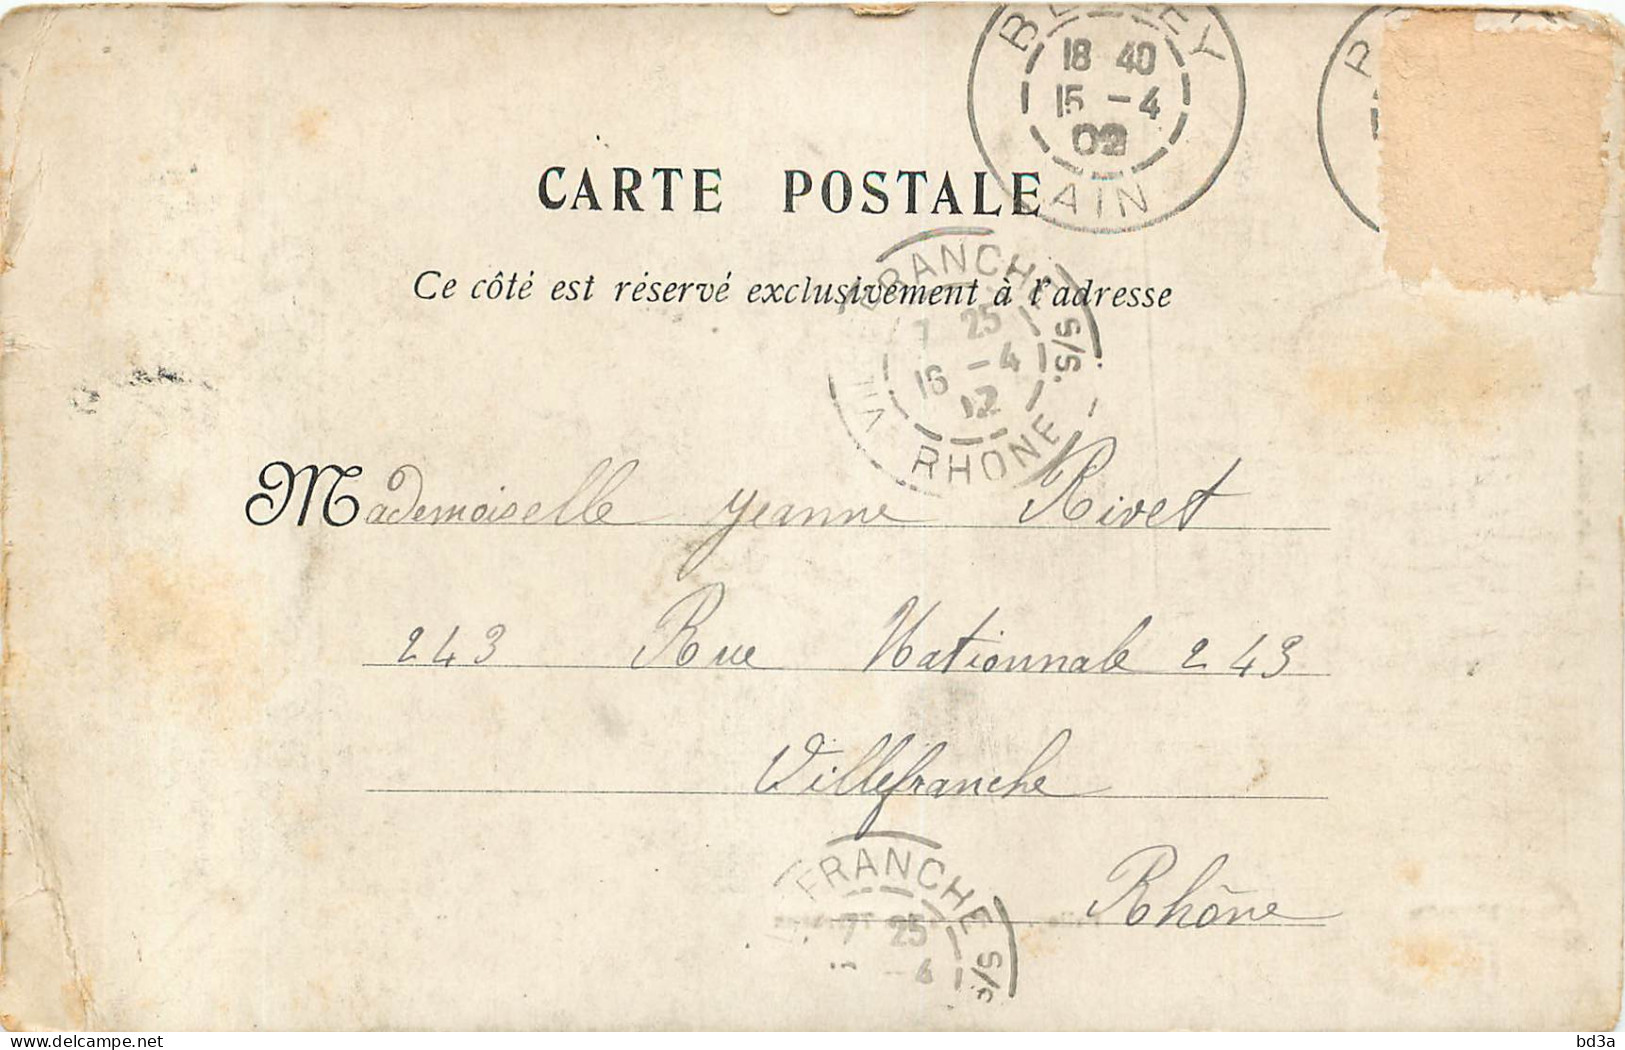 BELLEY
18 40
15 -4
02
AIN
CARTE POSTALE
Ce côté est réservé exclusivement à l'adresse
FRANCHE S/S.
7 25
16 -4
RHONE
Mademoiselle Jeanne Rivet
243 Rue Nationnale 243
Villefranche
Rhône
FRANCHE S/S
7 25
-4
bd3a